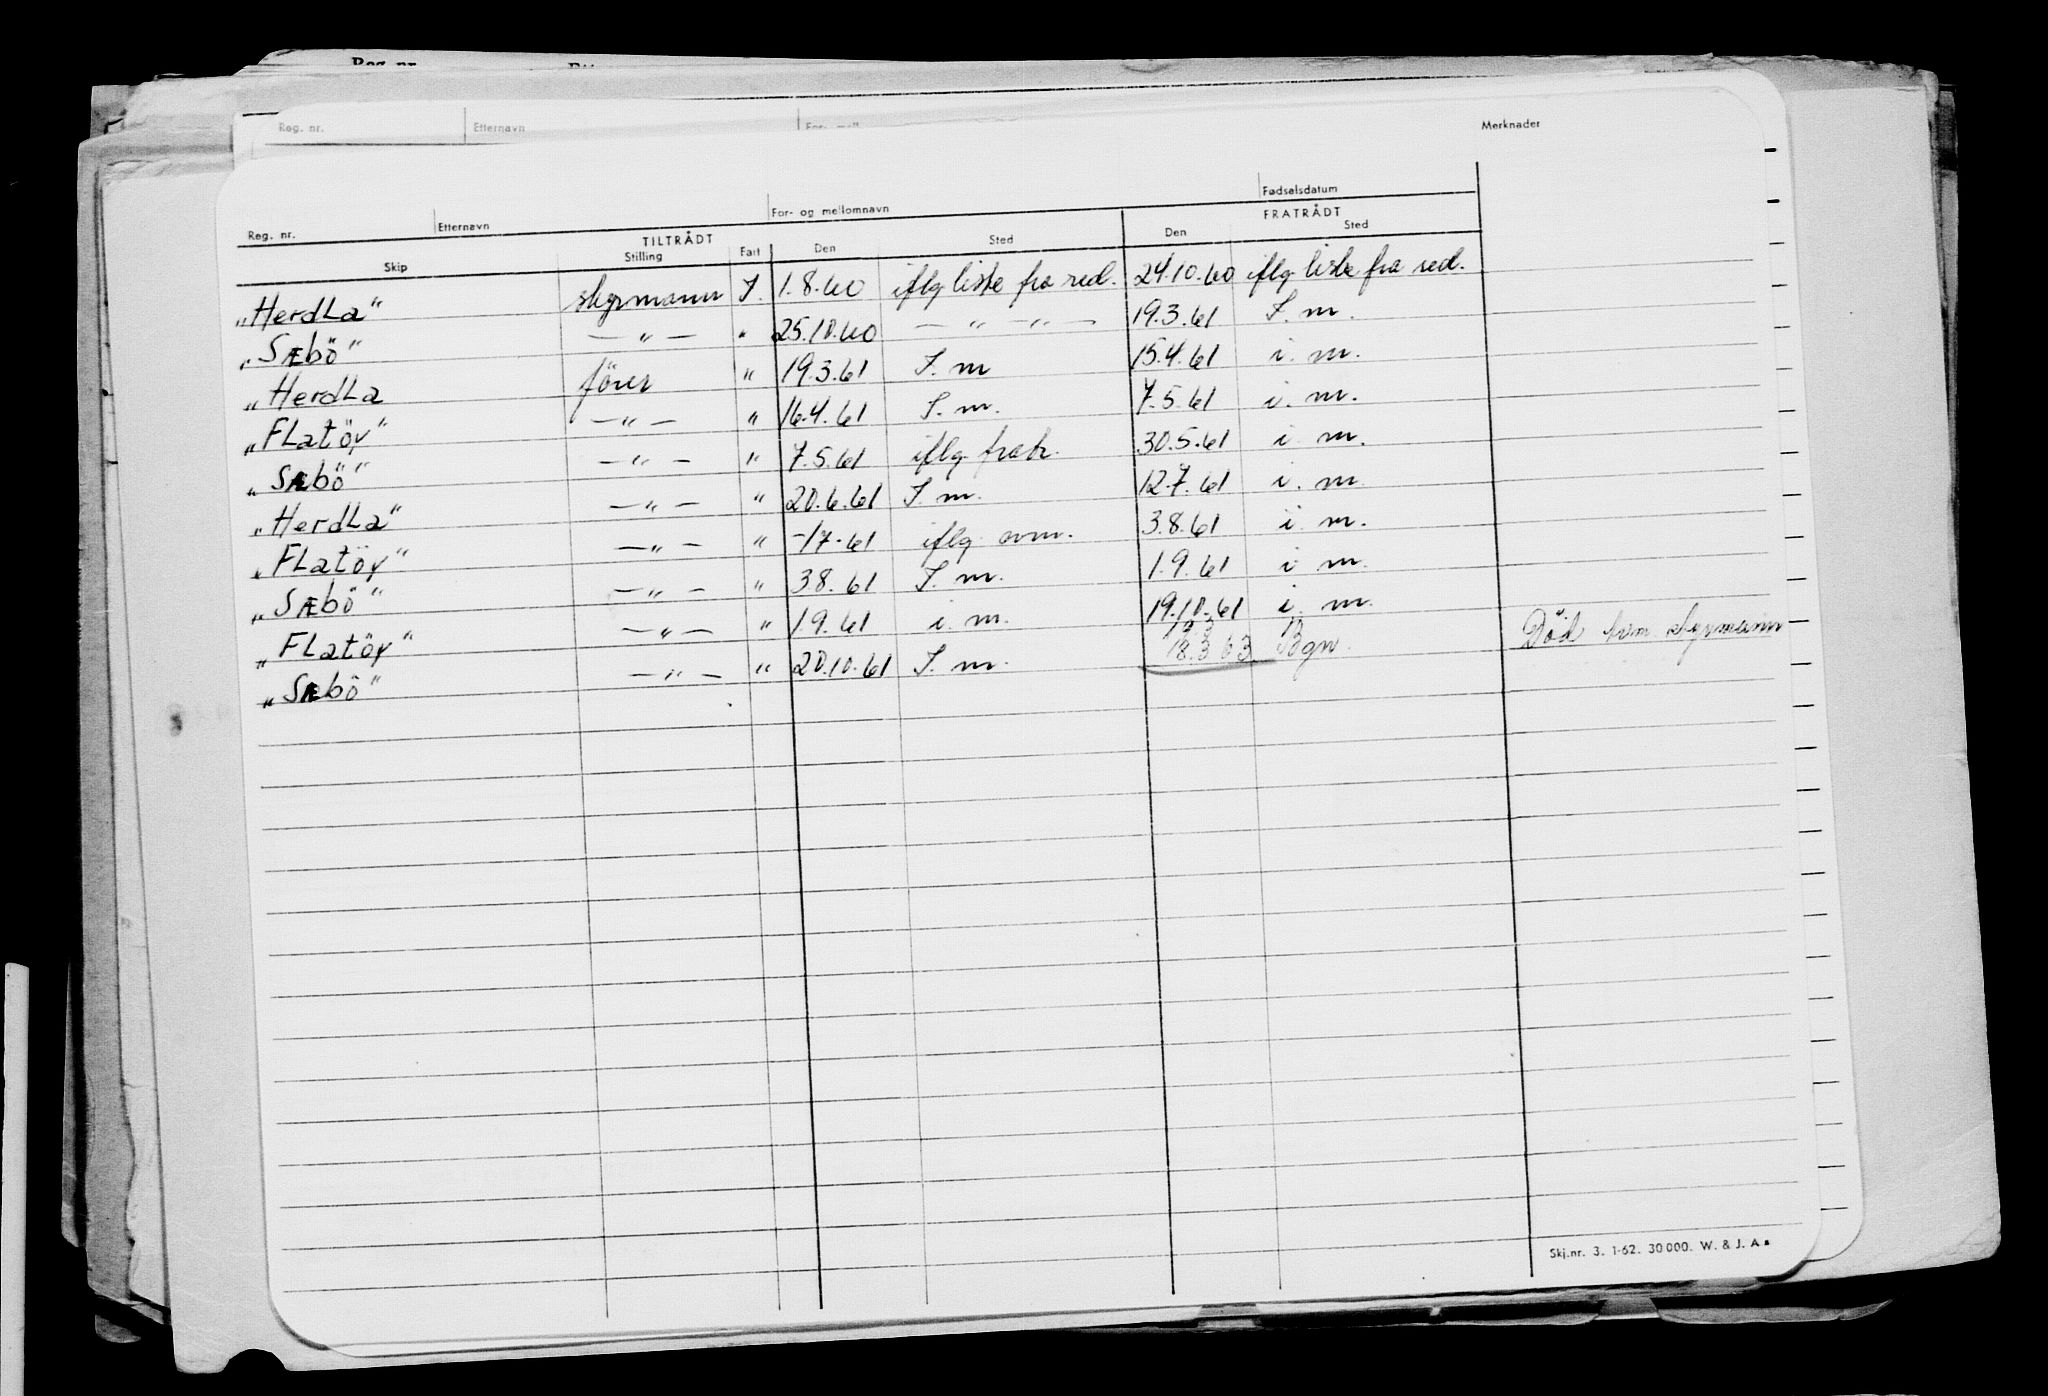 Reg. nr. Ette
Reg. nr. Etternavn For- mell
Merknader
Reg. nr. Etternavn For- og mellomnavn Fødselsdatum
TILTRÅDT FRATRÅDT
Skip Stilling Fart Den Sted Den Sted
"HerdLa" styrmann I. 1.8.60 iflg liste fra red. 24.10.60 iflg liste fra red.
"SÆbö" — " — " 25.10.60 — " — " — 19.3.61 I. m.
"HerdLa förer " 19.3.61 I. m 15.4.61 i. m.
"FLatöy" — " — " 16.4.61 I. m. 7.5.61 i. m.
"SÆbö" — " — " 7.5.61 iflg fratr. 30.5.61 i. m.
"HerdLa" — " — " 20.6.61 I. m. 12.7.61 i. m.
"FLatöy" — " — " -17-61 iflg. 3.8.61 i. m.
"SÆbö" — " — " 3.8.61 I. m. 1.9.61 i m.
"FLatöy" — " — " 1.9.61 i. m. 19.10.61 i. m.
"SÆbö" — " — " 20.10.61 I. m. 18.3 63 Bgn. Död som styrmann
Skj.nr. 3. 1-62. 30 000. W. & J. A s